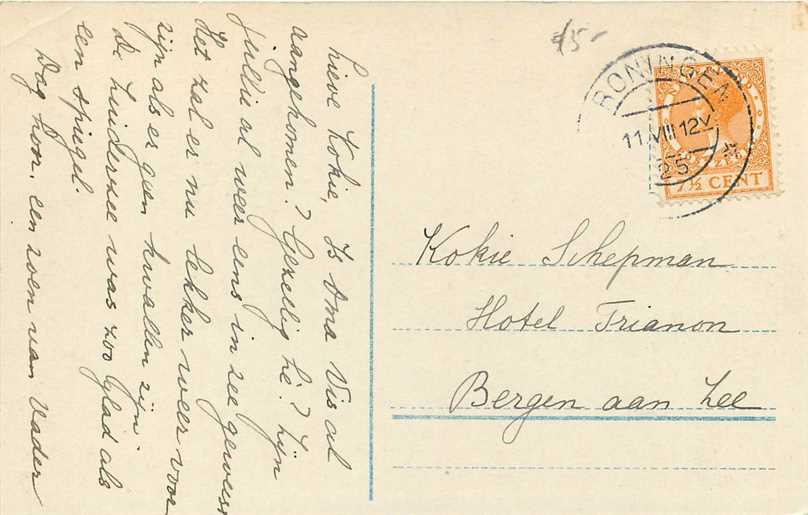 Lieve Kokie, Is Oma Vis al
aangekomen? Gezellig hè? Zijn
jullie al weer eens in zee geweest
Het zal er nu lekker weer voor
zijn als er geen kwallen zijn.
De Zuiderzee was zoo glad als
een spiegel.
Dag hoor, een zoen van Vader
£5-
GRONINGEN
11.VIII 12V
25
7½ CENT
Kokie Schepman
Hotel Trianon
Bergen aan Zee